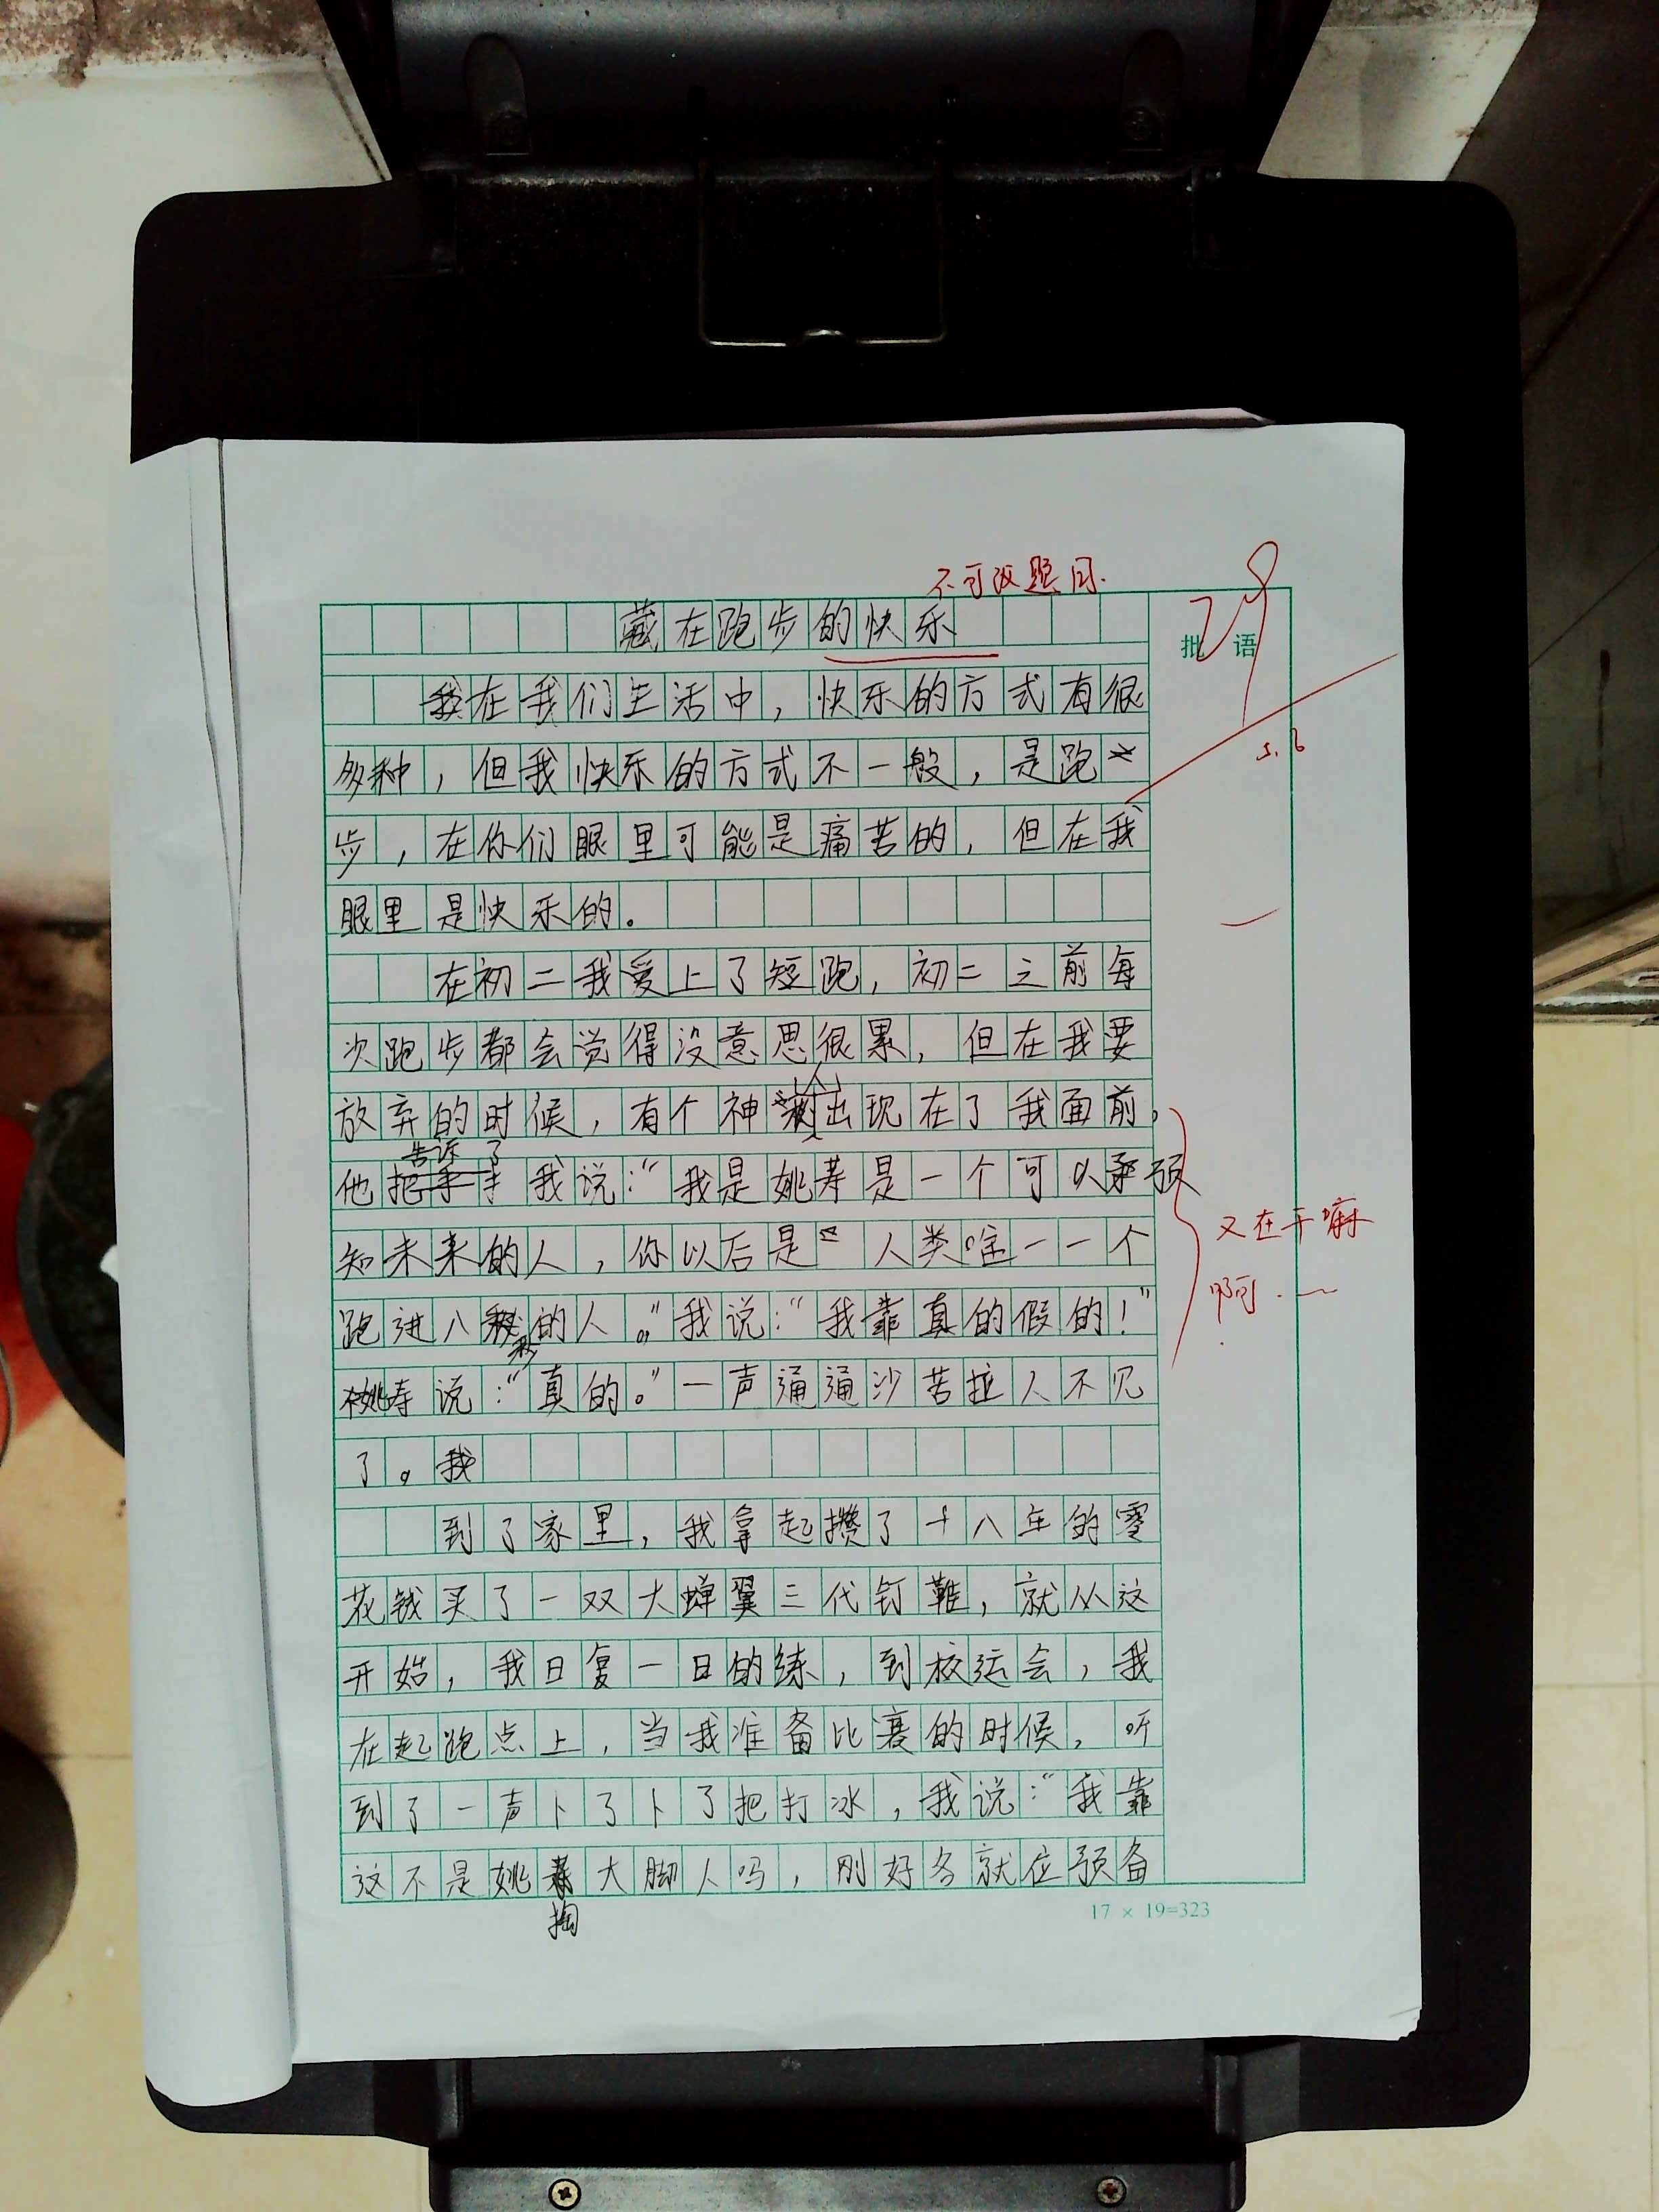 不可改题目.
藏在跑步的快乐
批 语
29
5.6
在我们生活中，快乐的方式有很
多种，但我快乐的方式不一般，是跑
步，在你们眼里可能是痛苦的，但在我
眼里是快乐的。
在初二我爱上了短跑，初二之前每
次跑步都会觉得没意思很累，但在我要
放弃的时候，有个神人出现在了我面前，
告诉了
他 我说：“我是姚寿是一个可以预
知未来的人，你以后是 人类唯一一个
跑进八秒的人。”我说：“我靠真的假的！”
姚寿说：“真的。”一声通通沙苦拉人不见
了。
又在干嘛
啊.
到了家里，我拿起攒了十八年的零
花钱买了一双大蝉翼三代钉鞋，就从这
开始，我日复一日的练，到校运会，我
在起跑点上，当我准备比赛的时候，听
到了一声卜了卜了把打冰，我说：“我靠
这不是姚 大脚人吗，刚好各就位预备
掏
17 × 19=323